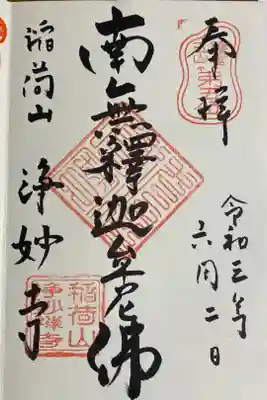 奉拝
令和三年
六月二日
南無釋迦牟尼佛
稲荷山
浄妙寺
稲荷山
浄妙禅寺